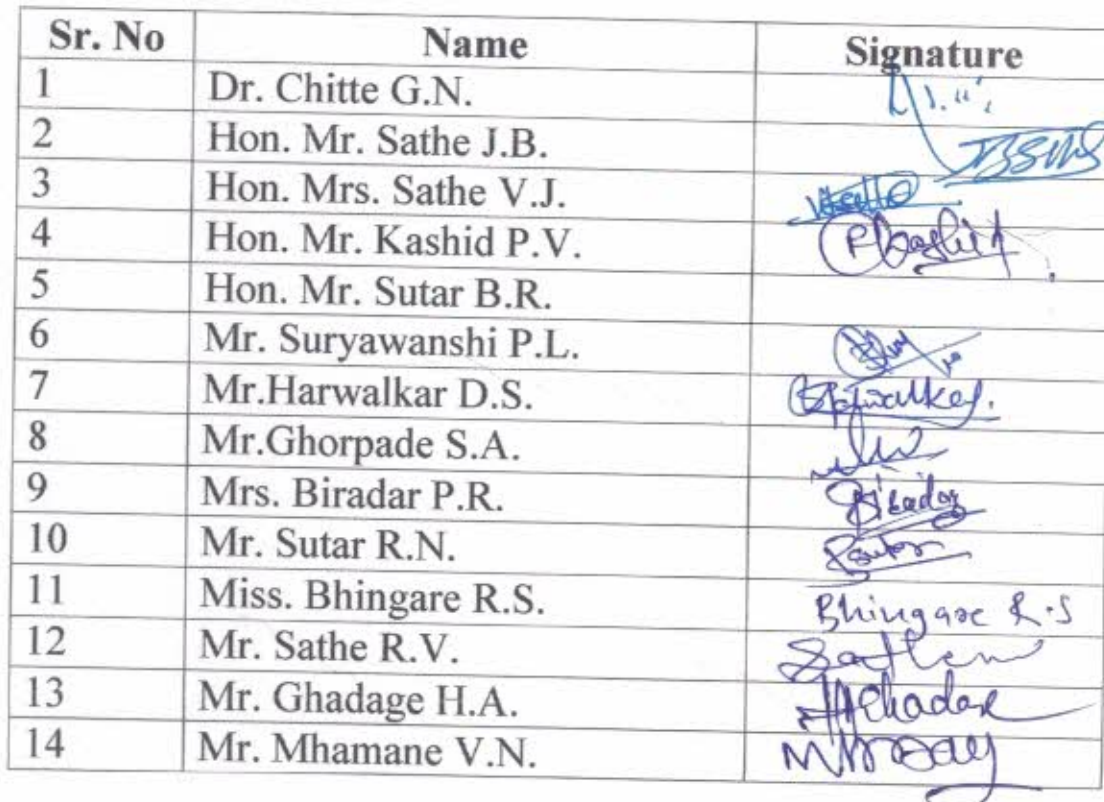 Sr. No Name Signature
1 Dr. Chitte G.N.
2 Hon. Mr. Sathe J.B.
3 Hon. Mrs. Sathe V.J.
4 Hon. Mr. Kashid P.V. PKashid
5 Hon. Mr. Sutar B.R.
6 Mr. Suryawanshi P.L.
7 Mr.Harwalkar D.S.
8 Mr.Ghorpade S.A.
9 Mrs. Biradar P.R. Biradar
10 Mr. Sutar R.N.
11 Miss. Bhingare R.S. Bhingare R.S
12 Mr. Sathe R.V.
13 Mr. Ghadage H.A.
14 Mr. Mhamane V.N.